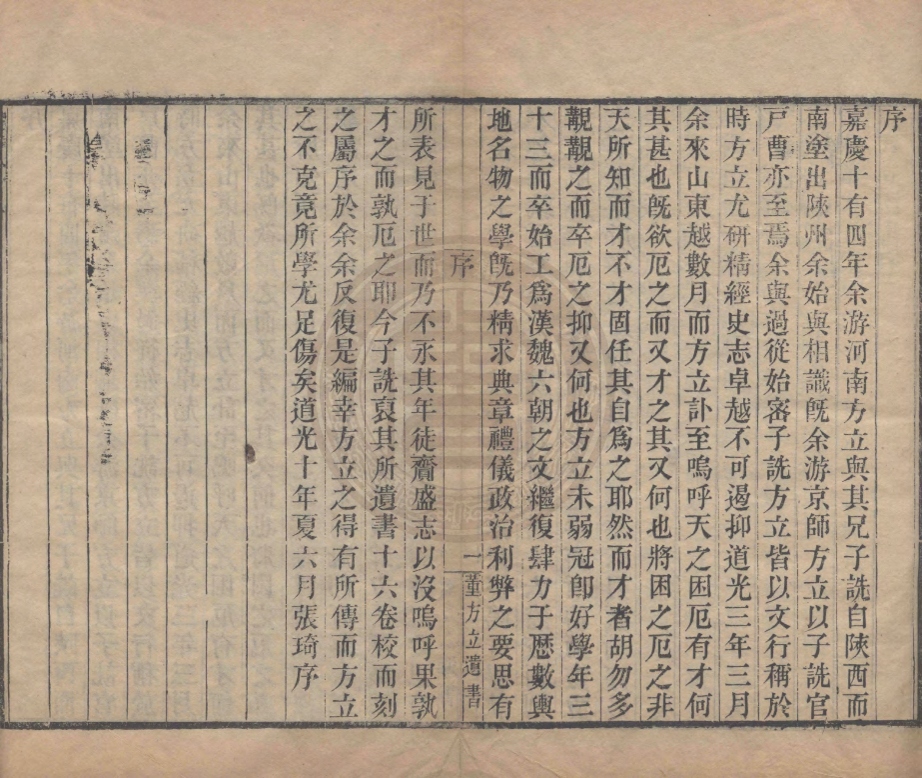 序
嘉慶十有四年余游河南方立與其兄子詵自陝西而
南塗出陝州余始與相識旣余游京師方立以子詵官
戸曹亦至焉余與過從始審子詵方立皆以文行稱於
時方立尤研精經史志卓越不可遏抑道光三年三月
余來山東越數月而方立訃至嗚呼天之困厄有才何
其甚也旣欲厄之而又才之其又何也將困之厄之非
天所知而才不才固任其自爲之耶然而才者胡勿多
覯覯之而卒厄之抑又何也方立未弱冠卽好學年三
十三而卒始工爲漢魏六朝之文繼復肆力于歷數輿
地名物之學旣乃精求典章禮儀政治利弊之要思有
序
一
董方立遺書
所表見于世而乃不永其年徒齎盛志以沒嗚呼果孰
才之而孰厄之耶今子詵裒其所遺書十六卷校而刻
之屬序於余余反復是編幸方立之得有所傳而方立
之不克竟所學尤足傷矣道光十年夏六月張琦序